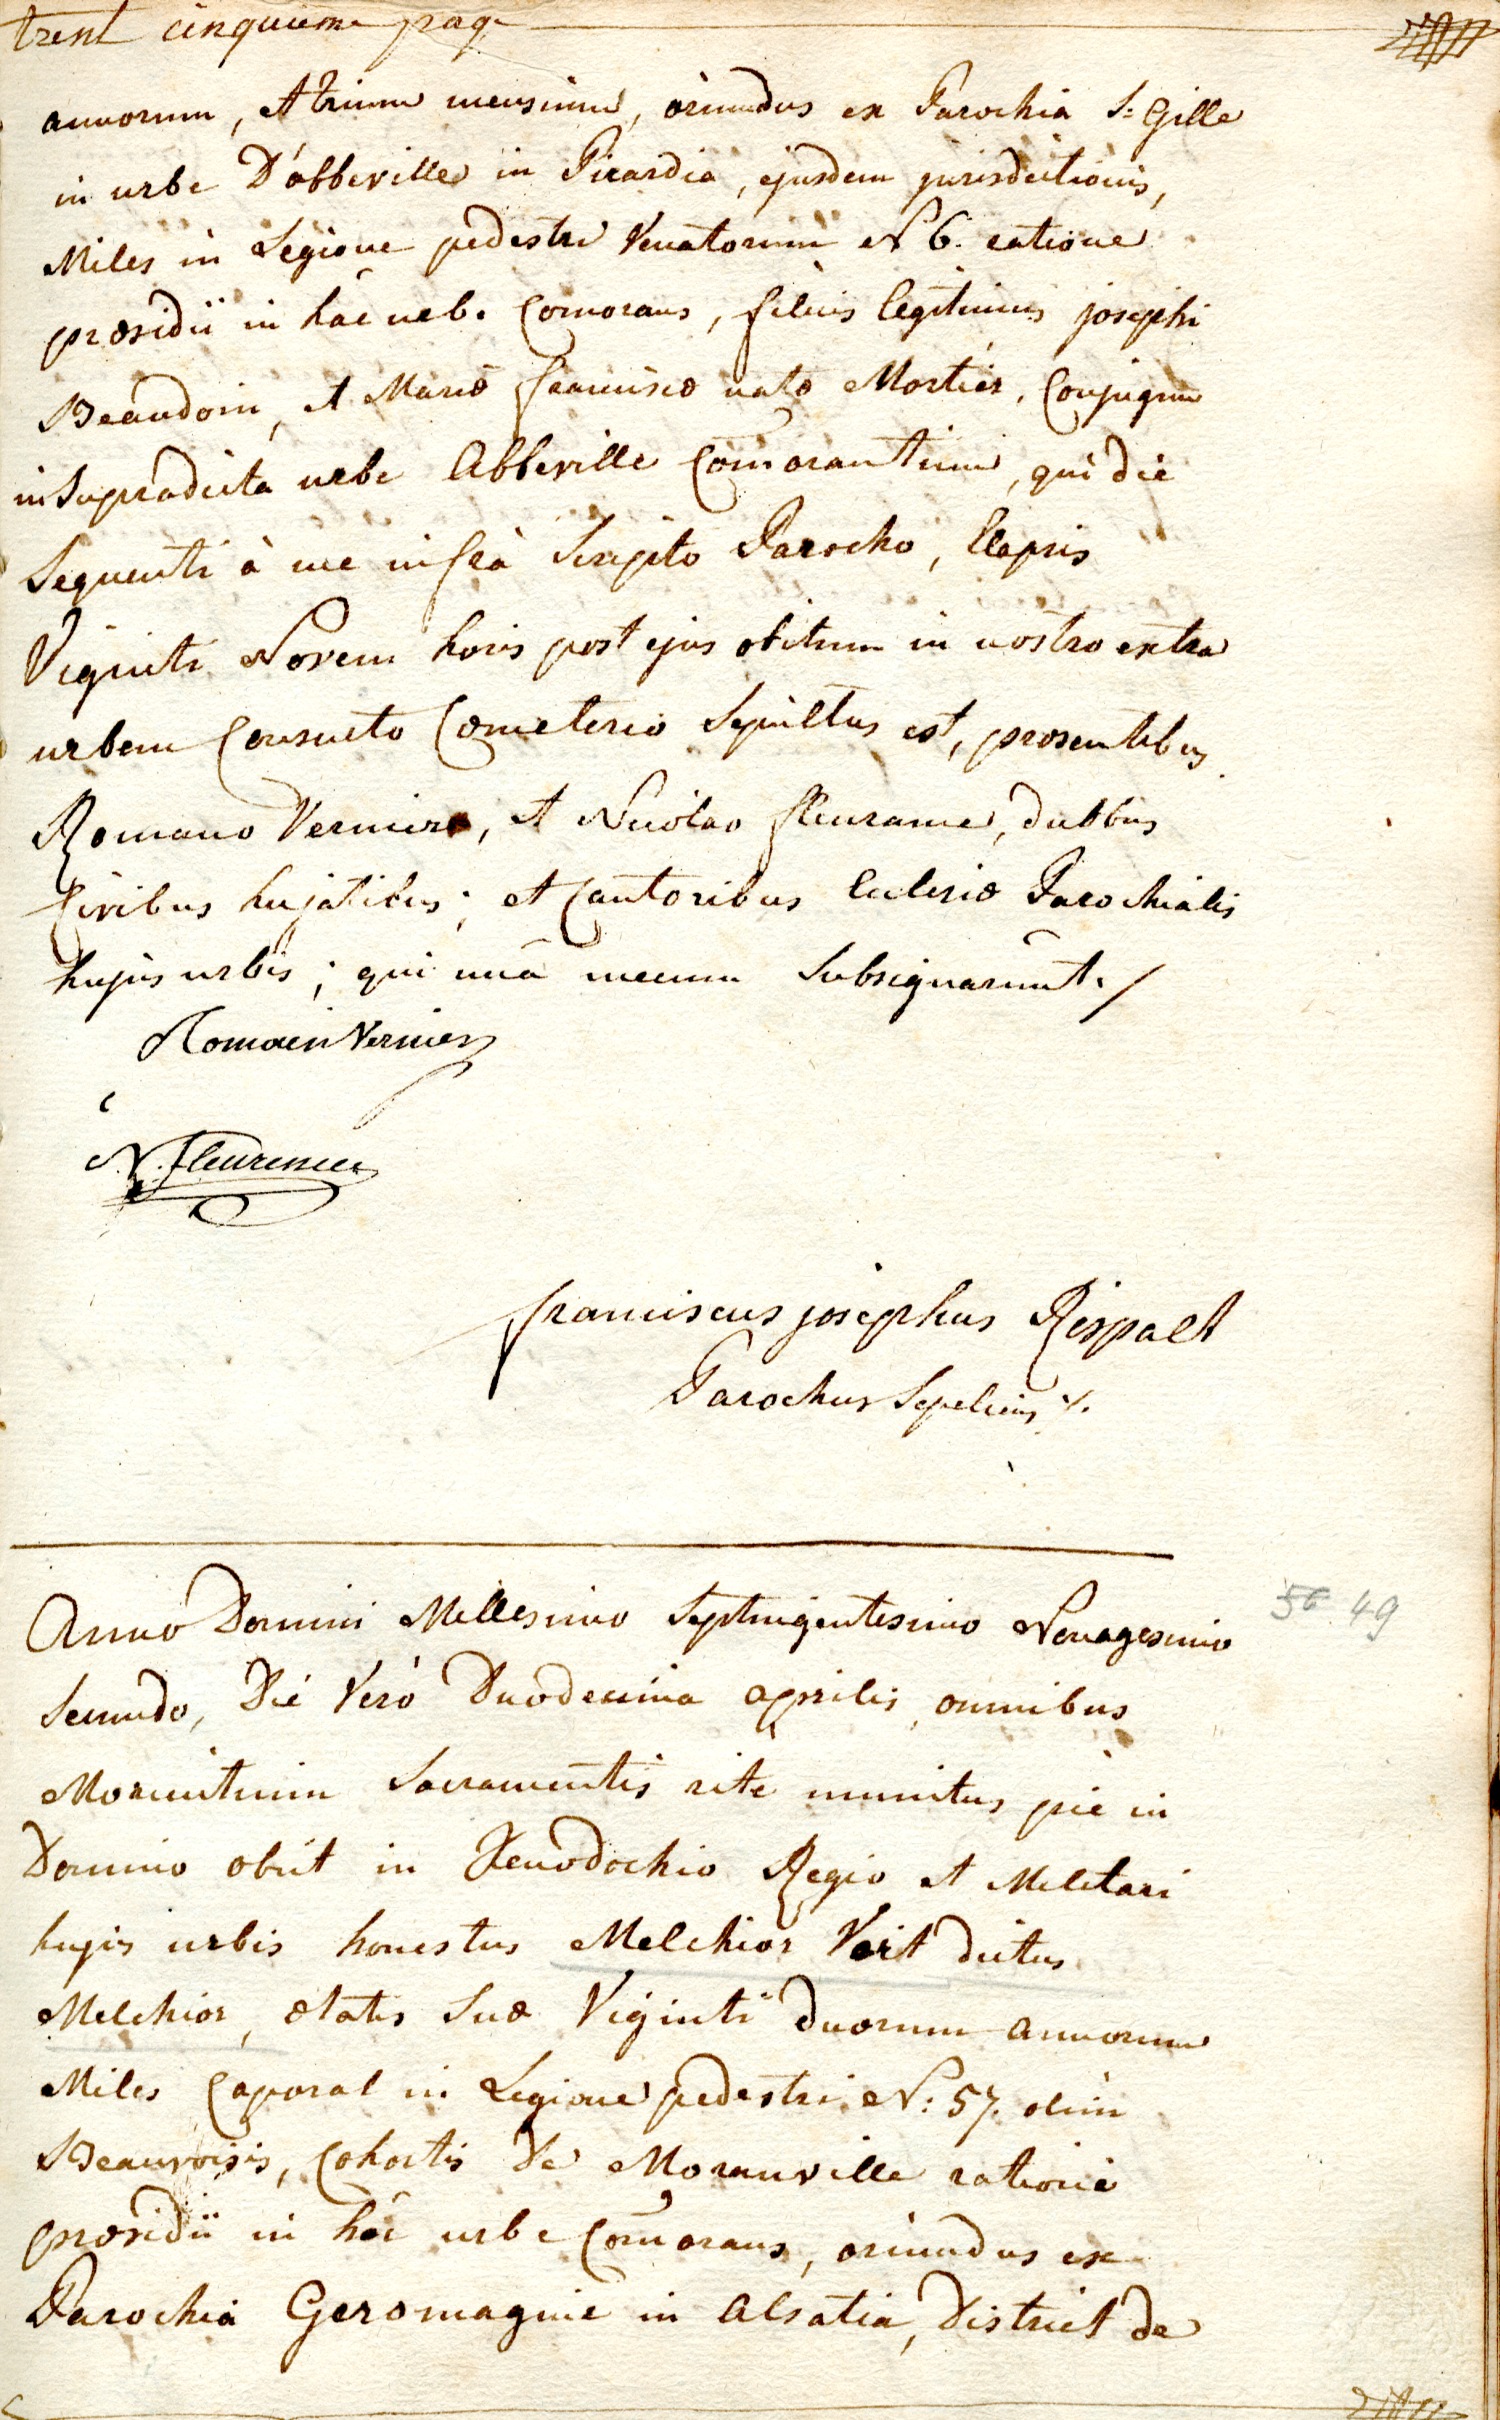 trent cinquieme page
annorum, et trium mensium, oriundus ex Parochia St: Gille
in urbe D'abbeville in Picardia, ejusdem jurisdictionis,
Miles in Legione pedestri Venatorum N 6. ratione
præsidii in hâc urbe Com̄orans, filius legitimus josephi
Beaudoin, et Mariæ franciscæ natæ Mortier, Conjugum
in Supradicta urbe Abbeville Com̄orantium, qui die
Sequenti à me infrà Scripto Parocho, Elapsis
Viginti Novem horis post ejus obitum in nostro extra
urbem Consueto Cœmeterio Sepultus est, præsentibus
Romano Vernier, et Nicolao fleurance, duobus
Civibus hujatibus; et Cantoribus Ecclesiæ Parochialis
hujus urbis; qui unâ mecum Subsignarunt./
Romain Vernier
N. fleurence
franciscus josephus Rispalt
Parochus Sepeliens /.
56 49
Anno Domini Millesimo Septingentesimo Nonagesimo
Secundo, Die Verò Duodecima aprilis, omnibus
Morientium Sacramentis rite munitus pie in
Domino obiit in Xenodochio Regio et Militari
hujus urbis honestus Melchior Veit dictus
Melchior, ætatis Suæ Viginti duorum annorum
Miles Caporal in Legione pedestri N: 57. olim
Beauvoisis, Cohortis de Moranville ratione
præsidii in hâc urbe Com̄orans, oriundus ex
Parochia Geromagnie in Alsatia, District de